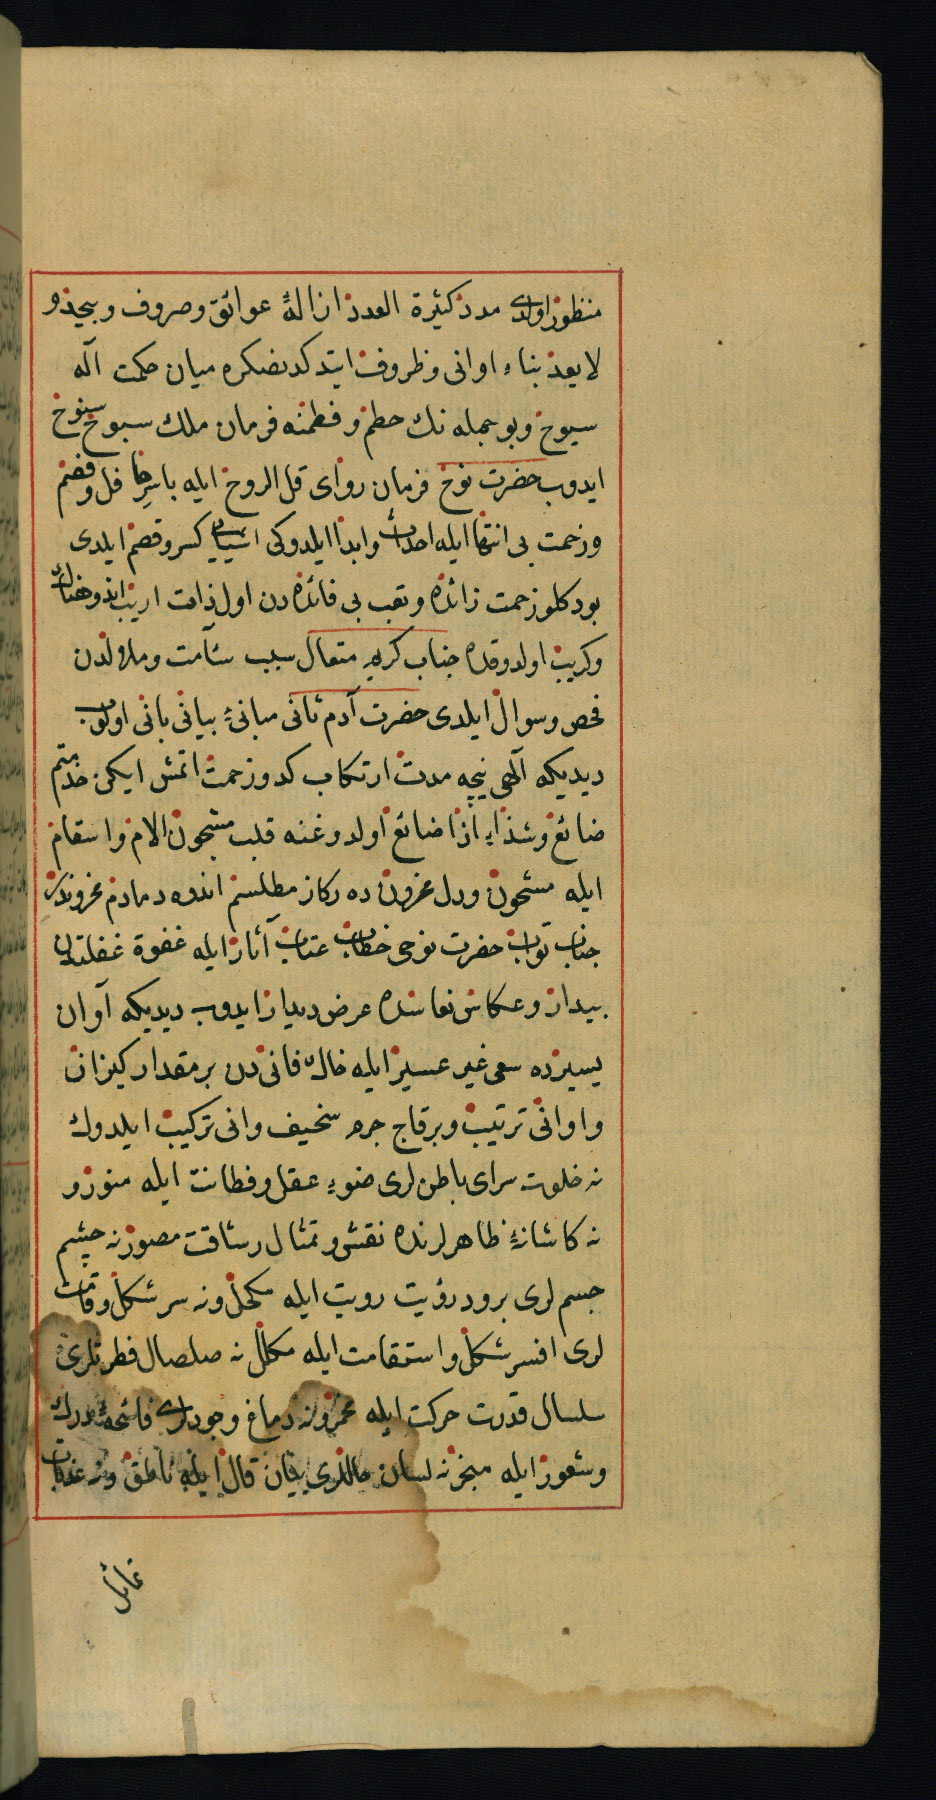 منظور اولدى مدد كثيرة العدد ازالهٔ عوائق وصروف وبيحد و
لا يعد بناء اوانى وظروف ايتدكدنصكره ميان حكمت آله
سيوح وبو جمله نك حطم و فطمنه فرمان ملك سبوح سنوح
ايدوب حضرت نوح فرمان رواى قل الروح ايله باسرها فل وقضم
وزحمت بى انتها ايله احداث وابدا ايلدوكى اشيايى كسر وقصم ايلدى
بودكلو زحمت زائده وتعب بى فائده دن اول ذات اريب اندوهناك
وكريب اولدوقده جناب كريم متعال سبب سآمت وملالدن
فحص وسوال ايلدى حضرت آدم ثانى مبانئ بيانى بانى اولوب
ديديكه آلهى نيچه مدت ارتكاب كد وزحمت اتمش ايكن خدمتم
ضائع وشذاء اذا ضائع اولدوغنه قلب مشحون الام واسقام
ايله مشحون ودل محزون ده ركاز مطلسم اندوه دمادم مخزوندر
جناب تواب حضرت نوحى خطاب عتاب آثار ايله غفوة غفلتدن
بيدار وعكاس نعاسنده عرض ديدار ايدوب ديديكه آوان
يسيرده سعى غير عسير ايله خاك فانى دن بر مقدار كيزان
واوانى ترتيب وبرقاج جرم سخيف وانى تركيب ايلدوك
نه خلوت سراى باطن لرى ضوء عقل وفطانت ايله منور و
نه كاشانهٔ ظاهرلرنده نقش وتمثال رشاقت مصور نه چشم
جسم لرى برود رؤيت رويت ايله مكحل ونه سر شكل وقامت
لرى افسر شكل واستقامت ايله مكلل نه صلصال فطرتلرى
سلسال قدرت حركت ايله مخمر ونه دماغ وجودلرى فائحهٔ درك
وشعور ايله مبخر نه لسان حاللرى بيان قال ايله ناطق ونه